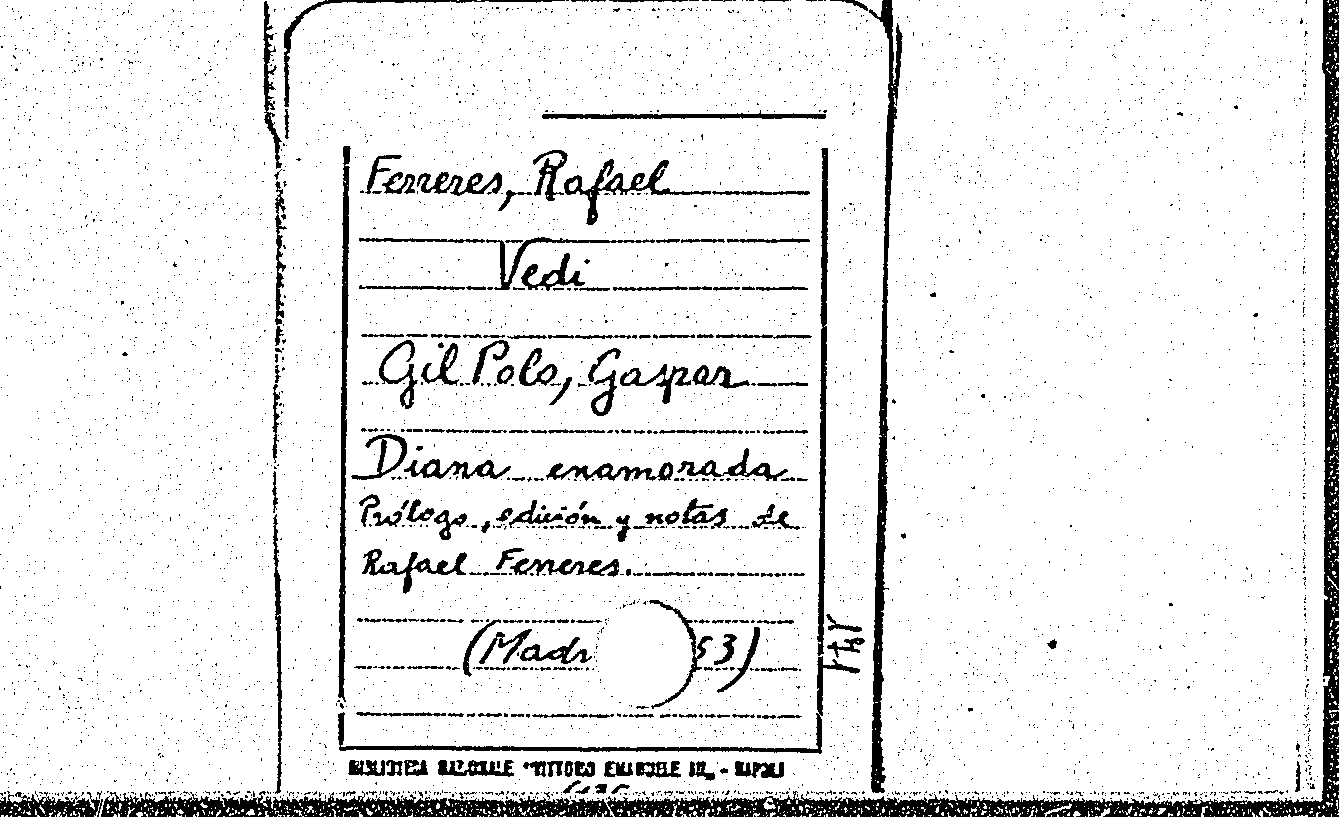 Ferreres, Rafael
Vedi
Gil Polo, Gaspar
Diana enamorada
Prólogo, edición y notas de
Rafael Ferreres.
(Madr 53)
BIBLIOTECA NAZIONALE "VITTORIO EMANUELE III" - NAPOLI